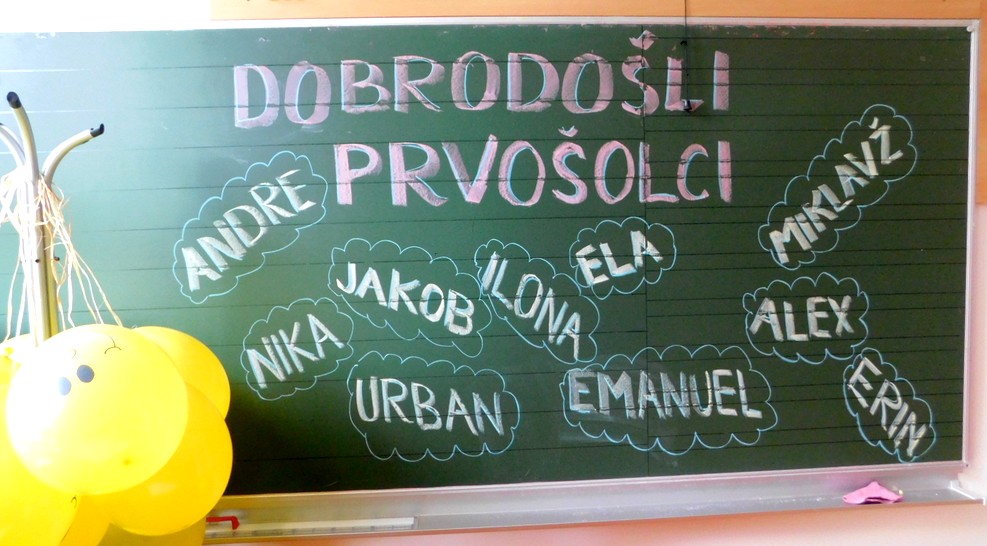 DOBRODOŠLI
PRVOŠOLCI
ANDRE
MIKLAVŽ
JAKOB
ILONA
ELA
NIKA
ALEX
URBAN
EMANUEL
ERIN